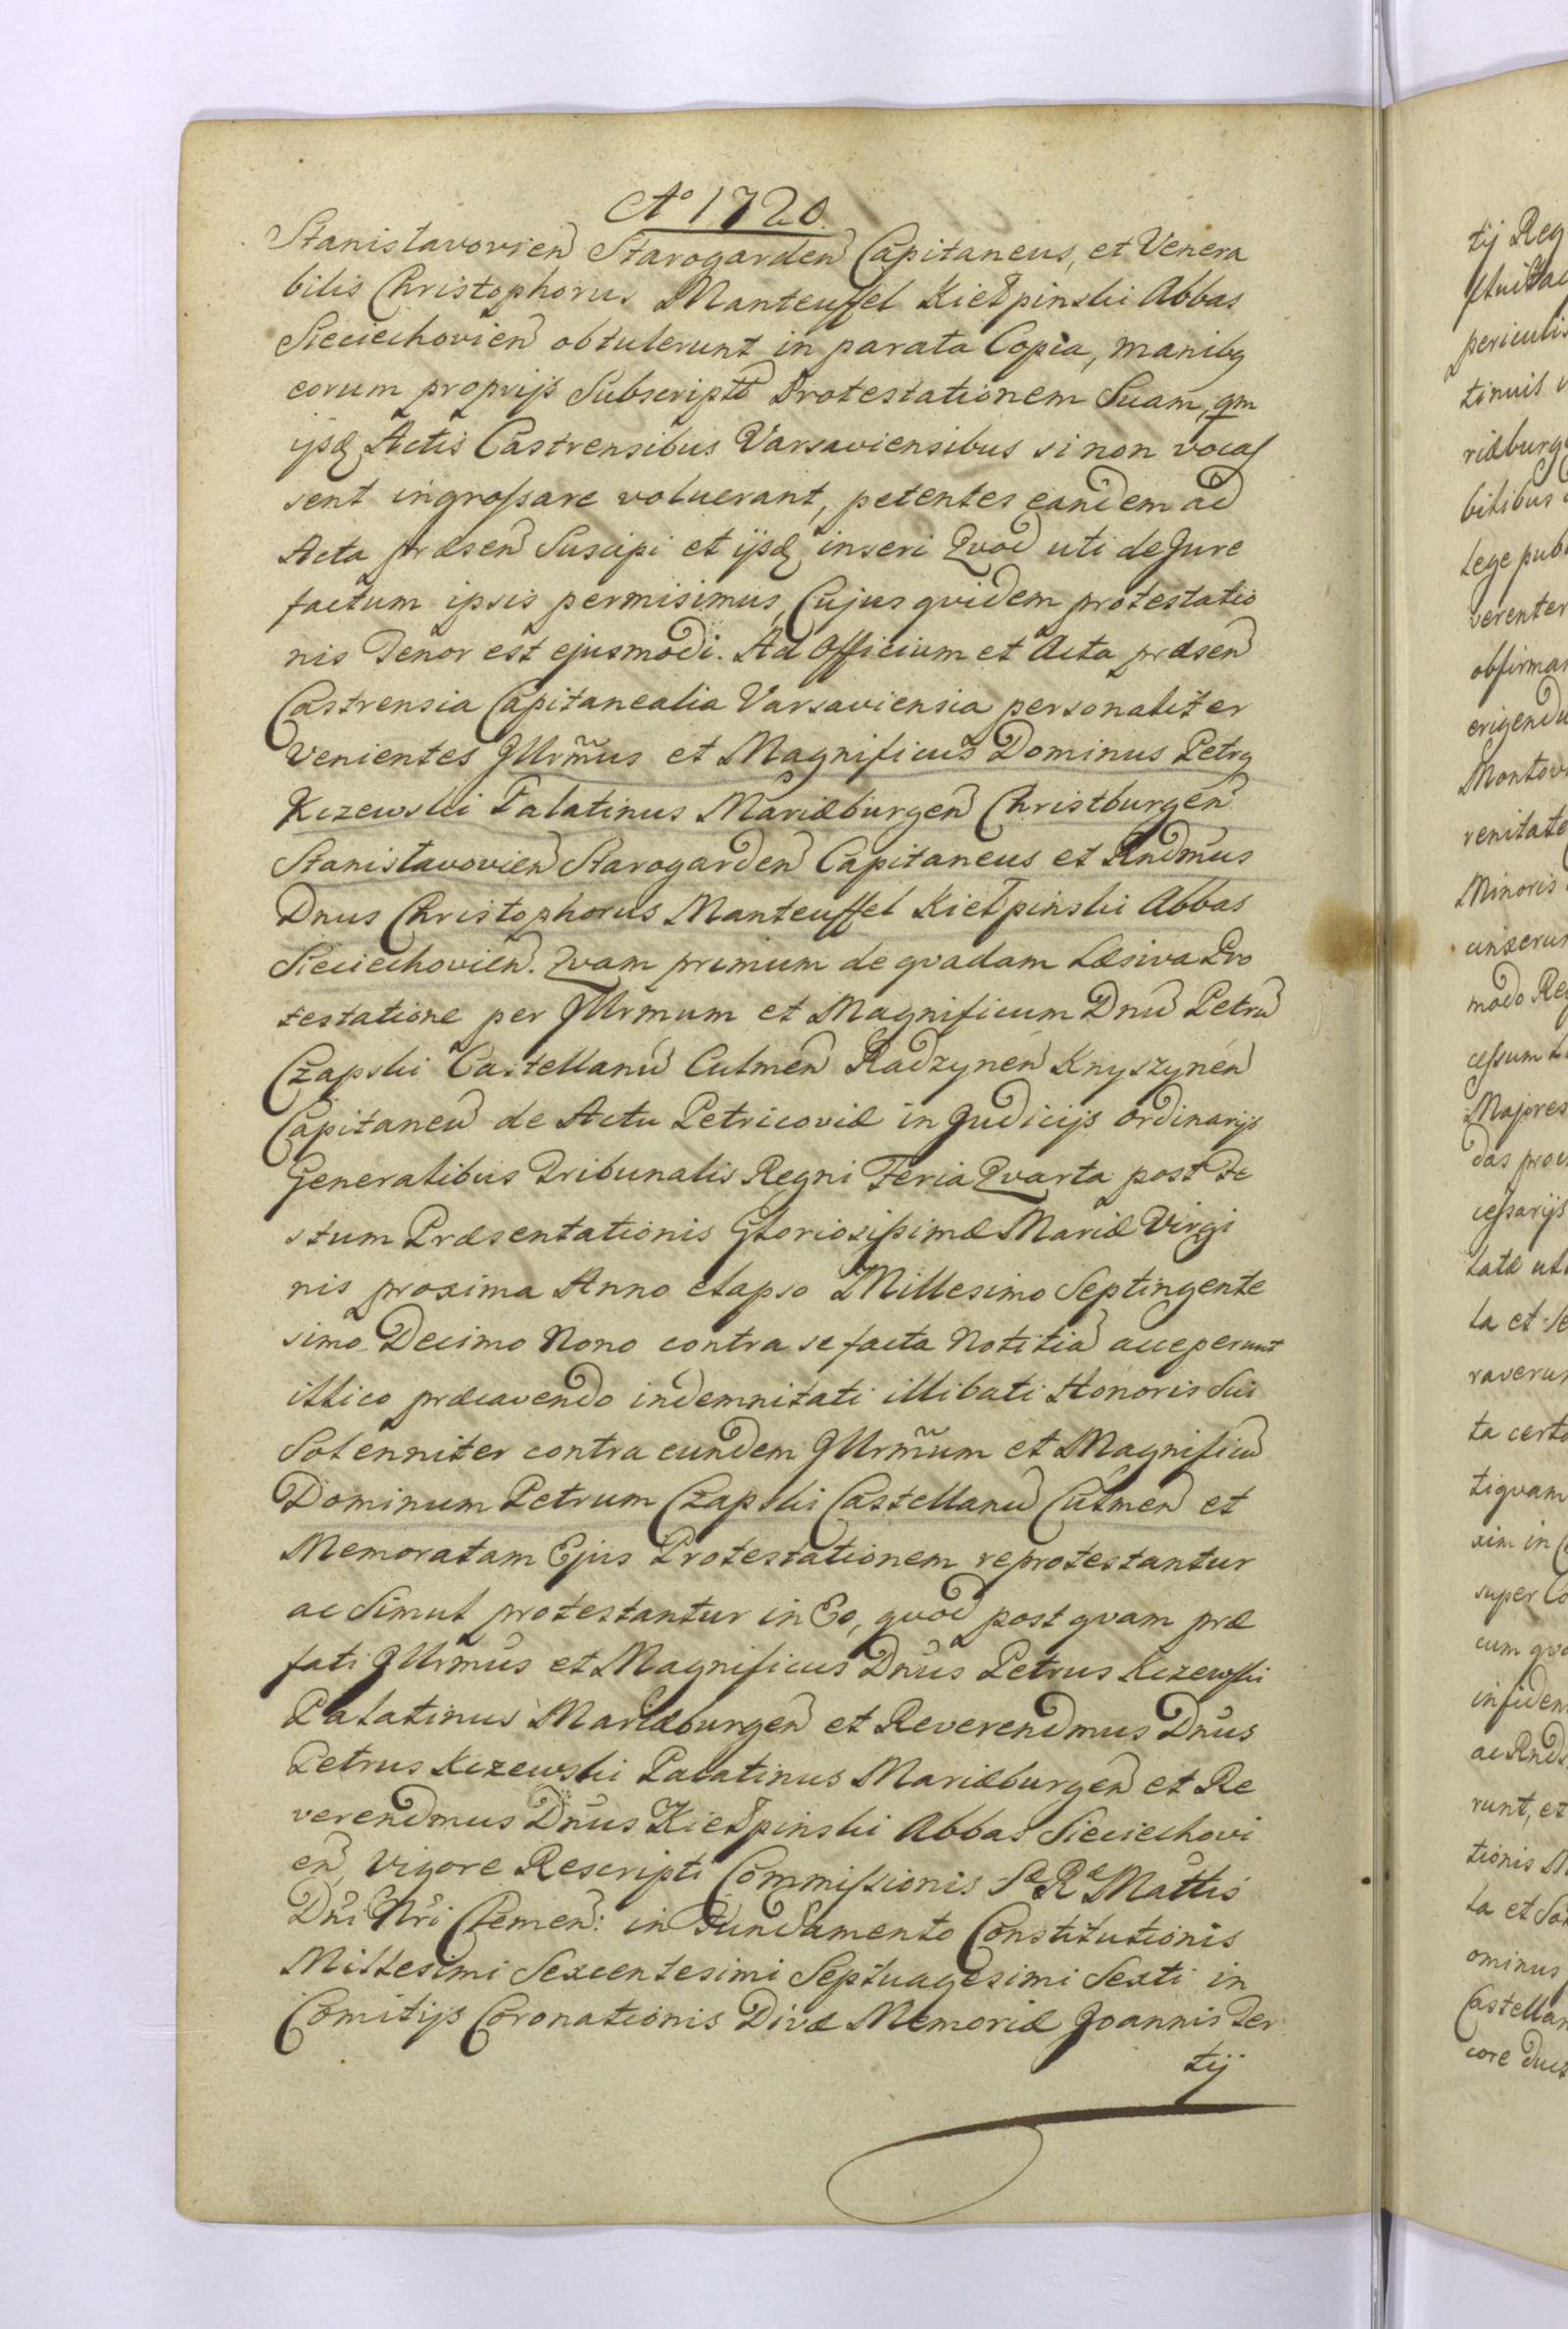 Ao 1720.
Stanislavovien Starogarden Capitaneus, et Venera
bilis Christophorus Manteuffel Kiełpinski Abbas
Sieciechovien obtulerunt in parata Copia, manibq
eorum proprijs Subscriptō Protestationem Suam, qm
ijsdē Actis Castrensibus Varsaviensibus si non vocas
sent ingrossare voluerant, petentes eandem ad
Acta præsen Suscipi et ijsdē inseri Qvod uti de Jure
factum ipsis permisimus, Cujus qvidem protestatio
nis Tenor est ejusmodi. Ad Officium et Acta præsen
Castrensia Capitanealia Varsaviensia personaliter
Venientes Jllrm̃us et Magnificus Dominus Petrq
Kczewski Palatinus Mariæburgen Christburgen
Stanisławovien Starogarden Capitaneus et Rndmus
Dnus Christophorus Manteuffel Kiełpinski Abbas
Sieciechovien. Qvam primum de qvadam Læsiva Pro
testatione per Jllrmum et Magnificum Dnū Petrū
Czapski Castellanū Culmen Radzynen Knyszynen
Capitaneū de Actu Petricoviæ in Judicijs ordinarijs
Generalibus Tribunalis Regni Feria Qvarta post Fe
stum Præsentationis Gloriosissimæ Mariæ Virgi
nis proxima Anno elapso Millesimo Septingente
simo Decimo Nono contra se facta Notitiā acceperunt
illico præcavendo indemnitati illibati Honoris Sui
Solenniter contra eundem Jllrm̃um et Magnificū
Dominum Petrum Czapski Castellanū Culmen et
Memoratam Ejus Protestationem reprotestantur
ac Simul protestantur in Eo, qvod post qvam præ
fati Jllrmus et Magnificus Dnus Petrus Kczewski
Palatinus Mariæburgen et Reverendmus Dnus
Petrus Kczewski Palatinus Mariæburgen et Re
verendmus Dnus Kiełpinski Abbas Sieciechovi
en, Vigore Rescripti Commissionis Sæ Ræ Mattis
Dni Nri Clemen: in Fundamento Constitutionis
Millesimi Sexcentesimi Septuagesimi Sexti in
Comitijs Coronationis Divæ Memoriæ Joannis Ter
tij
tij Reg
periculis
tinuis
riæburg
bilibus
Lege pub
verenter
obfirma
erigendu
Montov
renitate
Minoris
cinxerun
modo Re
cessum
Majores
das proc
cessarijs
latæ ut
la et Se
raverun
ta certo
tiqvam
xim in
super Co
cum qvo
infiden
ac Rnd
runt, et
tionis
la et So
ominus
Castellan
core duc